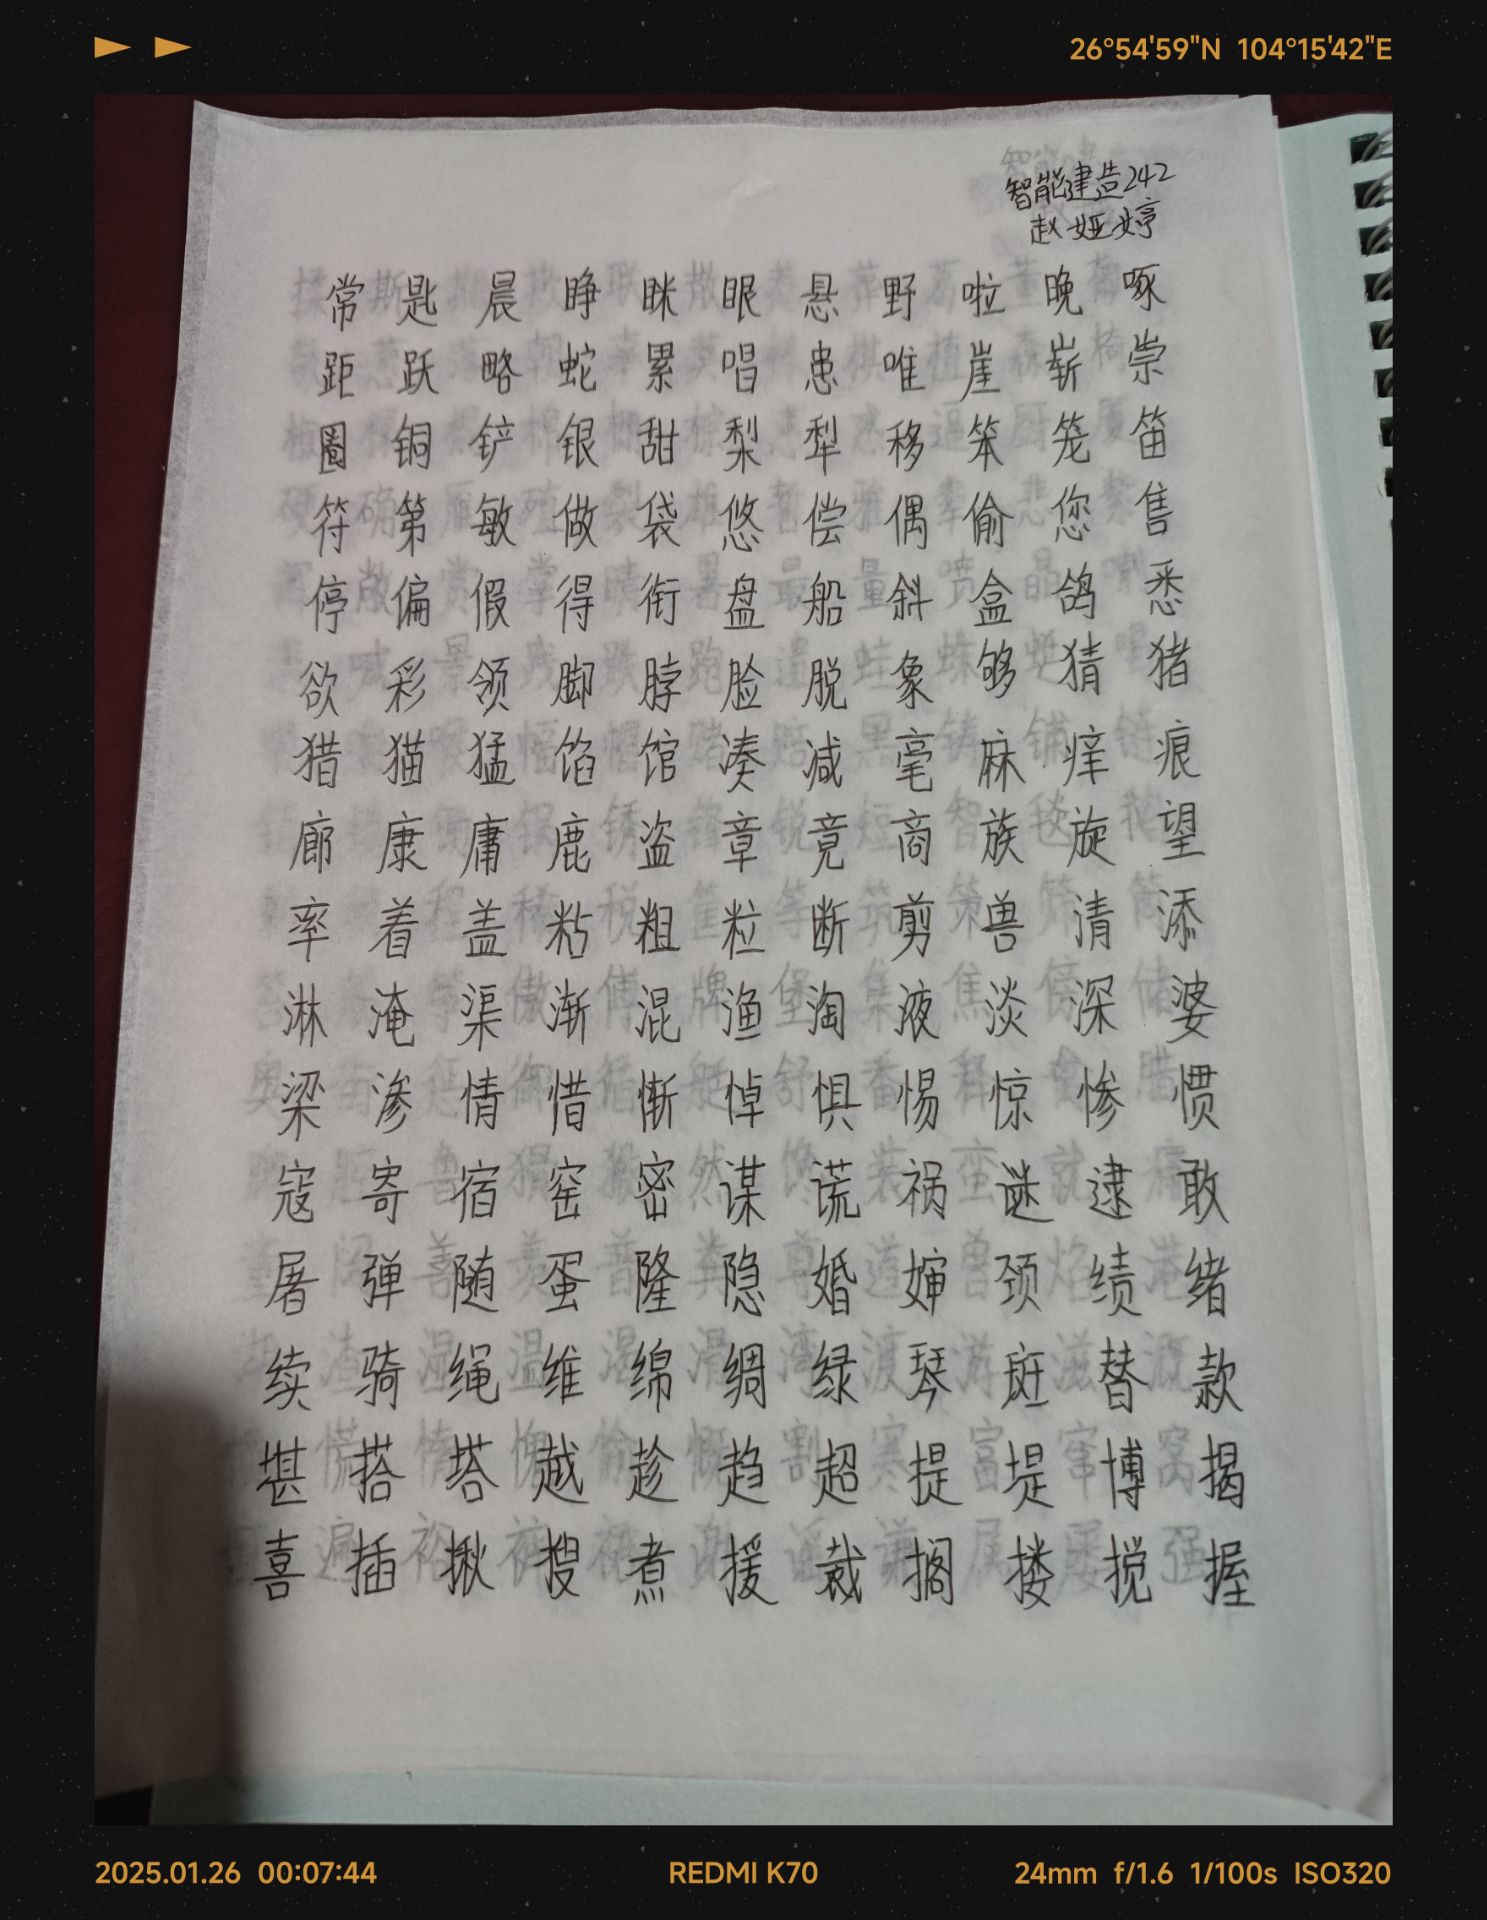 26°54'59"N 104°15'42"E
智能建造242
赵娅婷
常匙晨睁眯眼悬野啦晚啄
距跃略蛇累唱患唯崖崭崇
圈铜铲银甜梨犁移笨笼笛
符第敏做袋悠偿偶偷您售
停偏假得衔盘船斜盒鸽悉
欲彩领脚脖脸脱象够猜猪
猎猫猛馅馆凑减毫麻痒痕
廊康庸鹿盗章竟商族旋望
率着盖粘粗粒断剪兽清添
淋淹渠渐混渔淘液淡深婆
梁渗情惜惭悼惧惕惊惨惯
寇寄宿窑密谋谎祸谜逮敢
屠弹随蛋隆隐婚婶颈绩绪
续骑绳维绵绸绿琴斑替款
堪搭塔越趁趋超提堤博揭
喜插揪搜煮援裁搁搂搅握
2025.01.26 00:07:44
REDMI K70
24mm f/1.6 1/100s ISO320